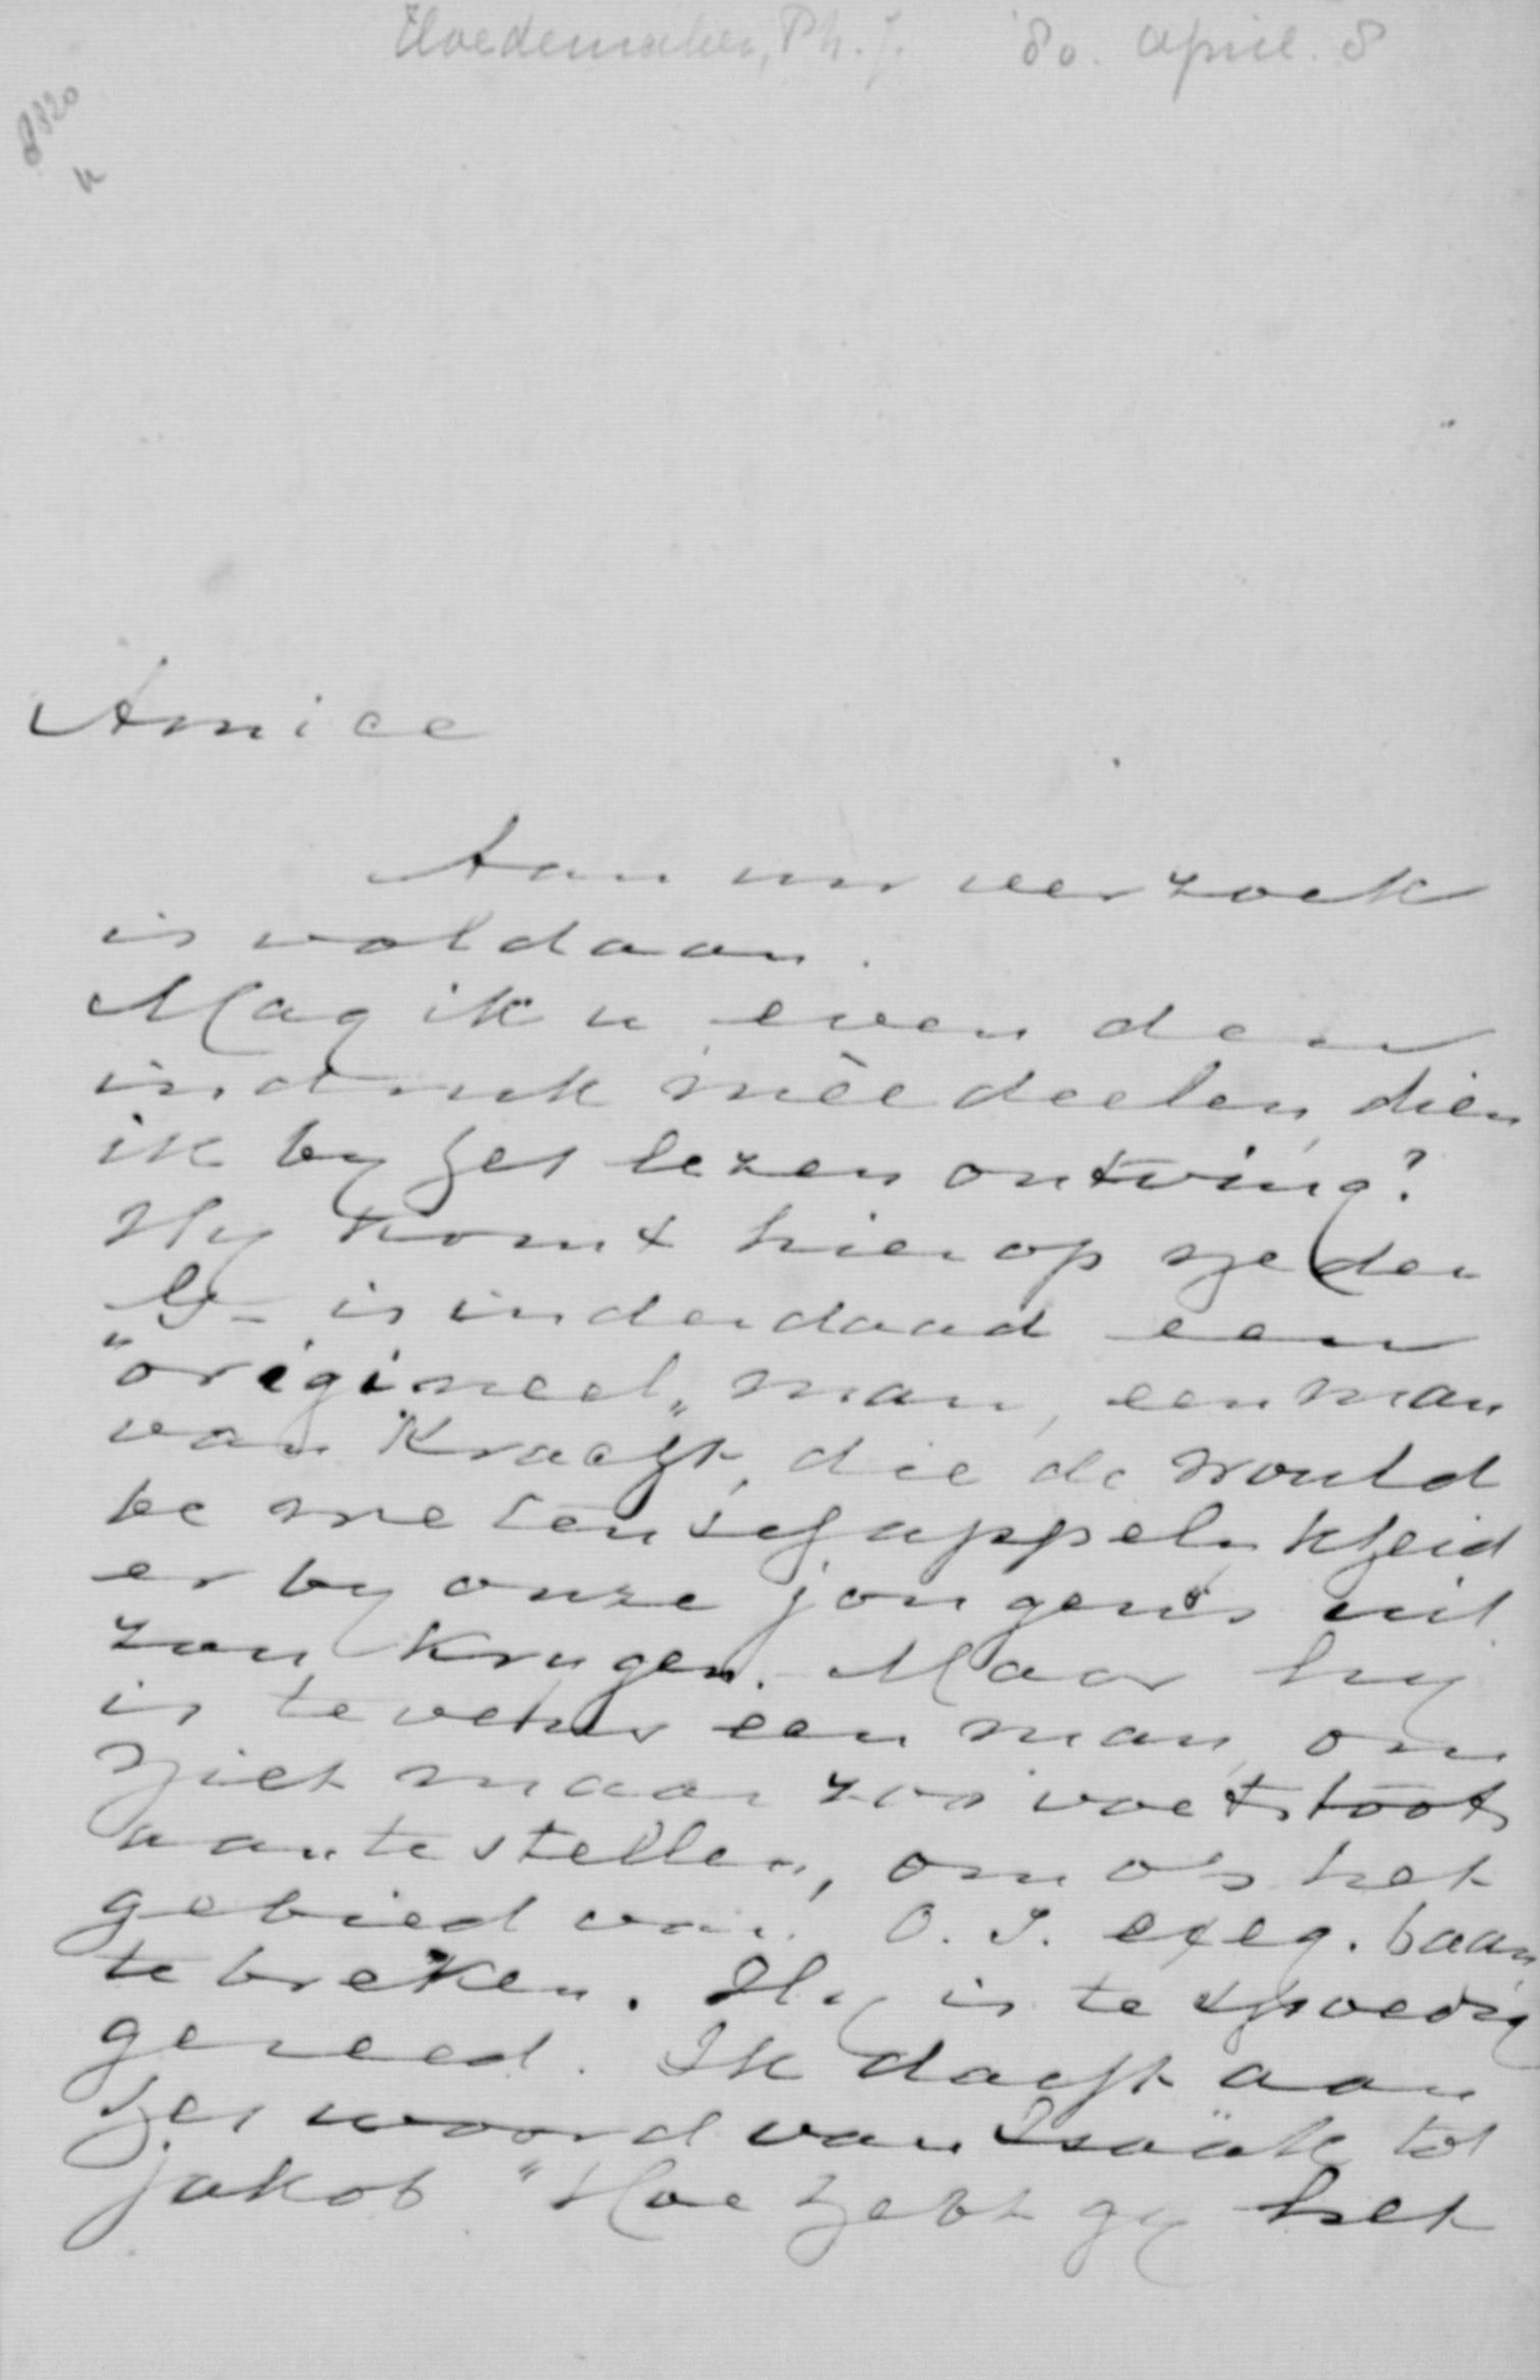 Hoedemaker, Ph. J. 80. april. 8
8320
Amice
Aan uw verzoek
is voldaan.
Mag ik u even den
indruk méédeelen, dien
ik by het lezen ontving?
Hy komt hierop neder
G- is inderdaad een
"origineel" man, een man
van Kracht, die de
wetenschappelykheid
er by onze jongens uit
zou krygen. Maar hy
is tevens een man, om
niet maar zoo voetstoots
aan te stellen, om op het
gebied van O. T. exeg. baan
te breken. Hy is te spoedig
gereed. Ik dacht aan
het woord van Isaäk tot
Jakob "Hoe hebt gy het